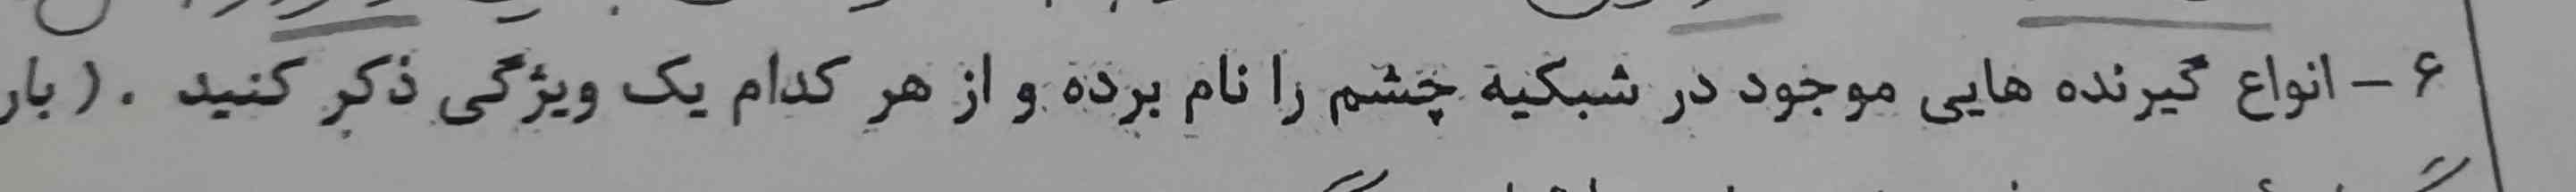 ۶ – انواع گیرنده هایی موجود در شبکیه چشم را نام برده و از هر کدام یک ویژگی ذکر کنید . ( بار